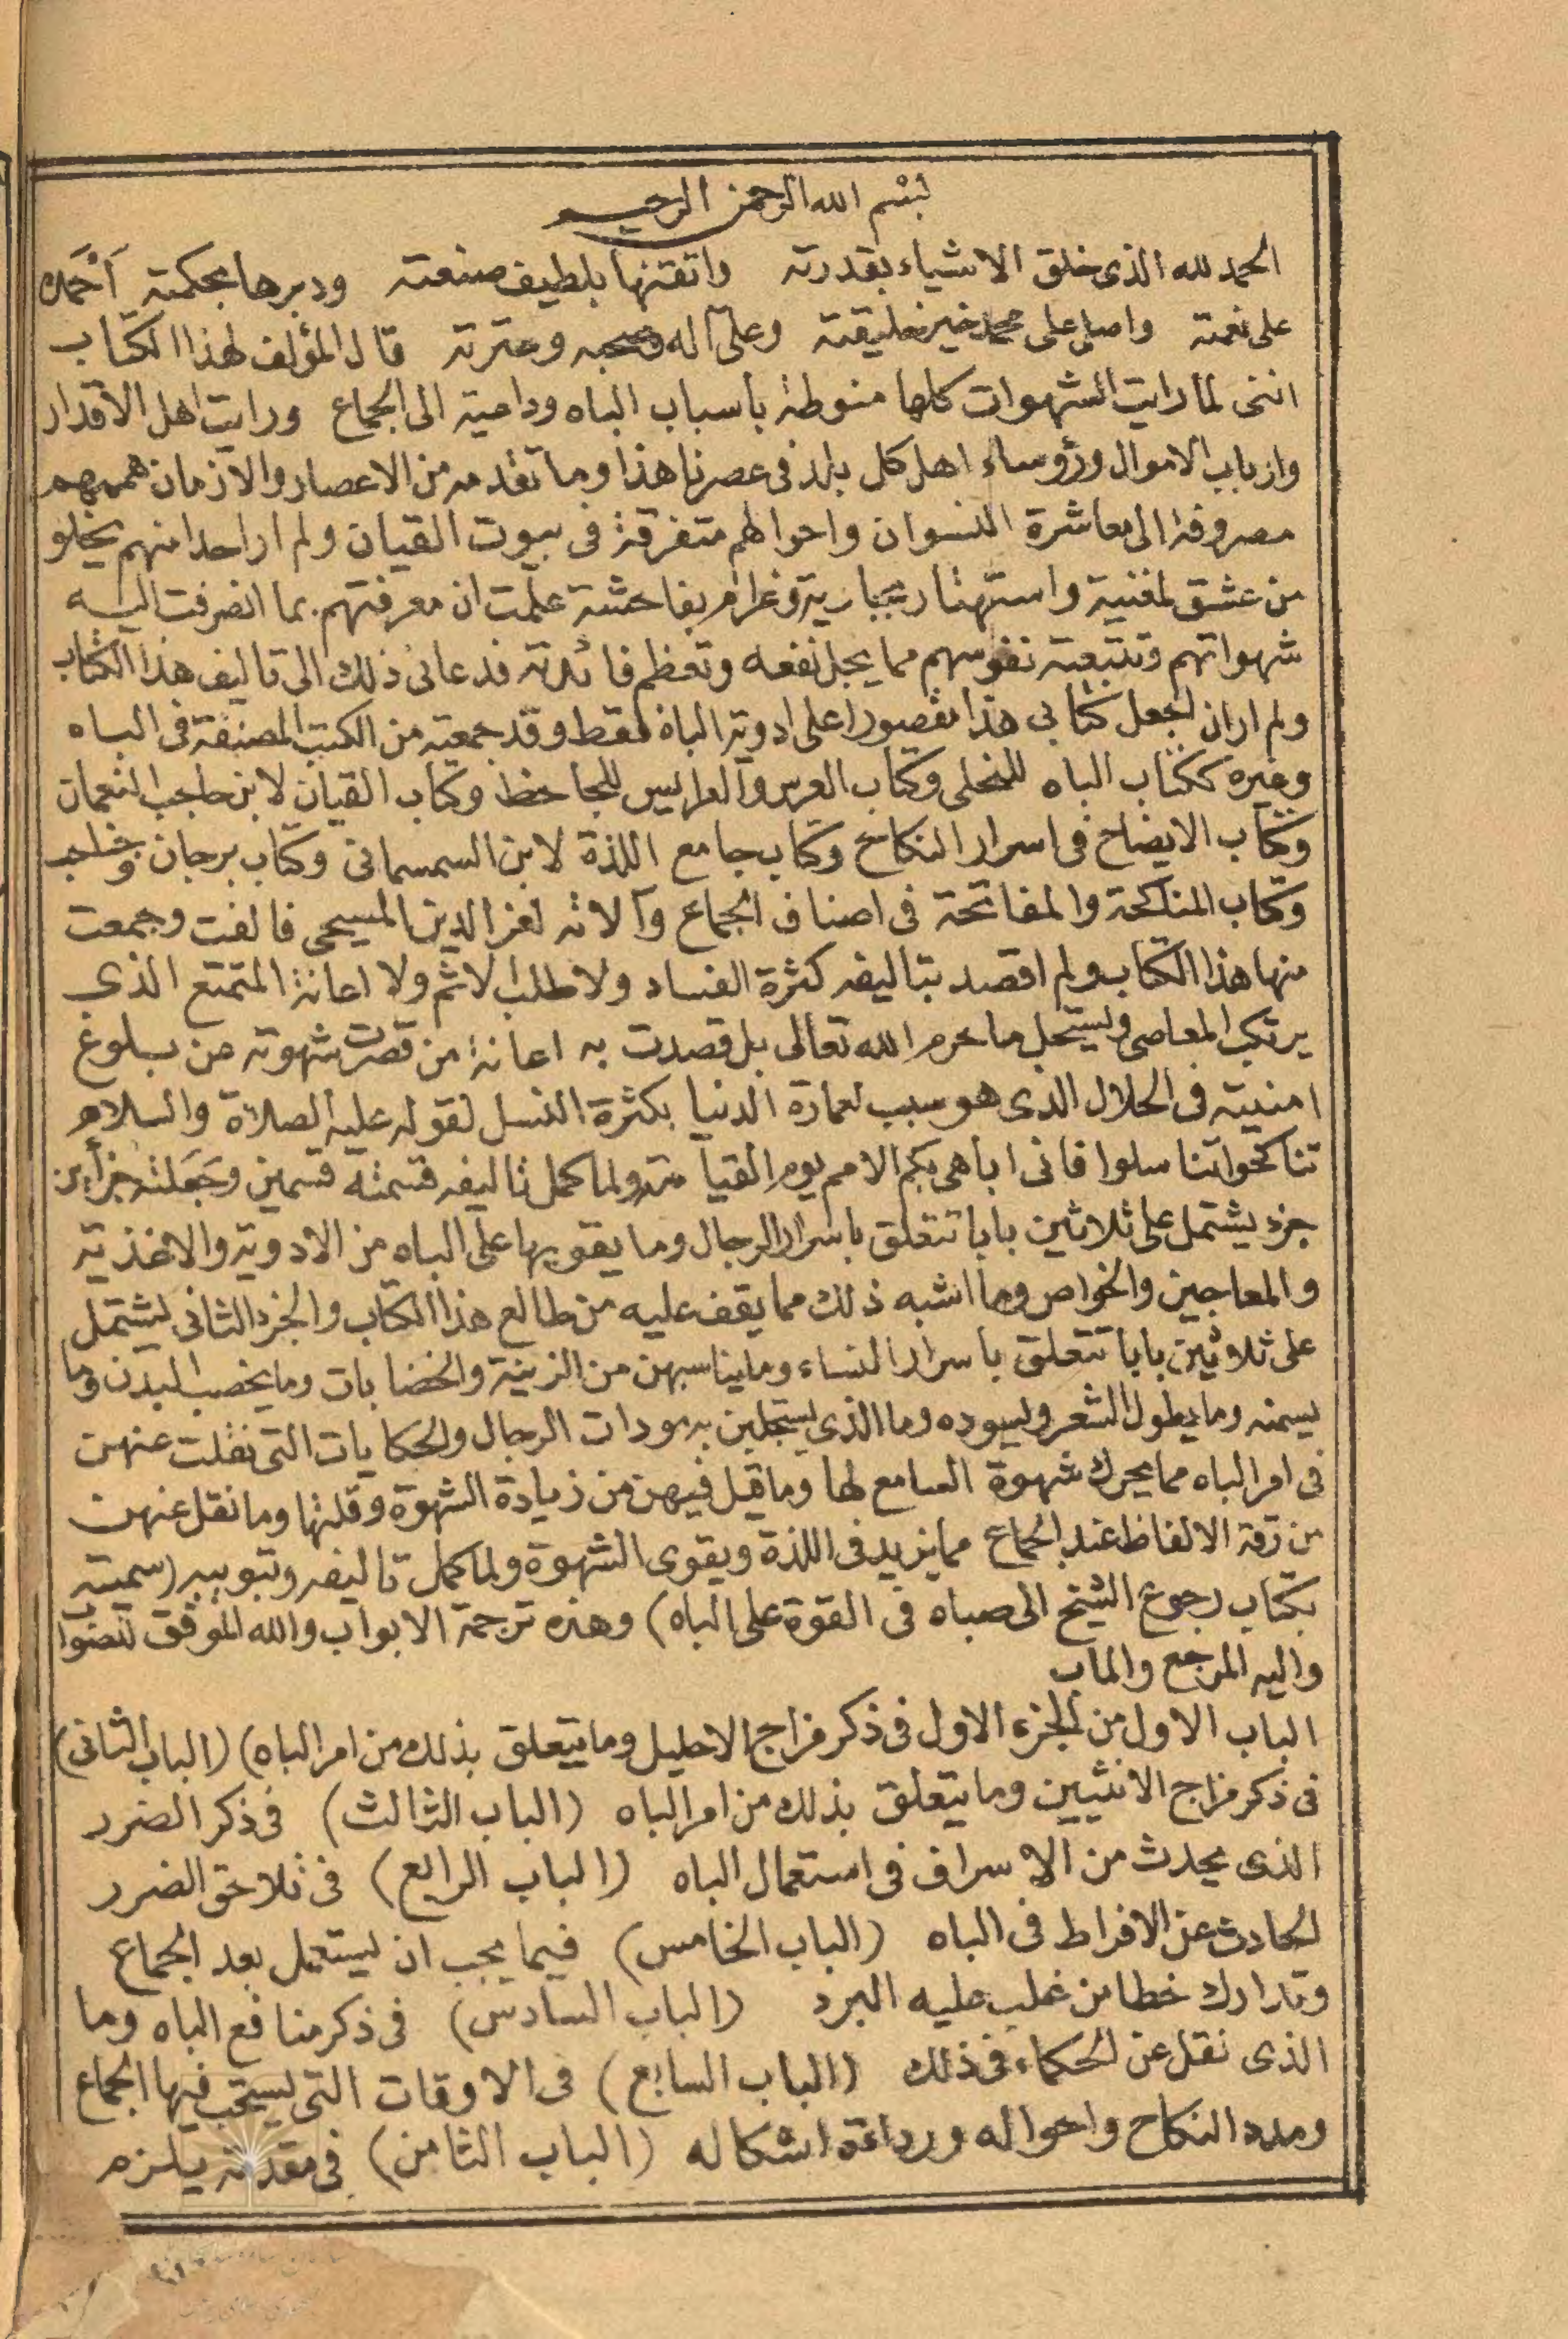 بسم الله الرحمن الرحيم
الحمد لله الذى خلق الاشياء بقدرته واتقنها بلطيف صنعته ودبرها بحكمته أحمده
على نعمته واصلى على محمد خير خليقته وعلى آله وصحبه وعترته قال المؤلف لهذا الكتاب
اننى لما رايت الشهوات كلها منوطة بأسباب الباه وداعية الى الجماع ورايت اهل الاقدار
وارباب الاموال ورؤوساء اهل كل بلد فى عصرنا هذا وما تقدمه من الاعصار والازمان هممهم
مصروفة الى معاشرة النسوان واحوالهم متفرقة فى بيوت القيان ولم ار احدا منهم يخلو
من عشق لمغنية واستهتار بجارية وغرام بفاحشة علمت ان معرفتهم بما انصرفت اليه
شهواتهم وتتبعته نفوسهم مما يجل نفعه وتعظم فائدته فدعانى ذلك الى تاليف هذا الكتاب
ولم ار ان اجعل كتابى هذا مقصورا على ادوية الباه فقط وقد جمعته من الكتب المصنفة فى الباه
وغيره ككتاب الباه للنحلى وكتاب العرس والعرايس للجاحظ وكتاب القيان لابن حاجب النعمان
وكتاب الايضاح فى اسرار النكاح وكتاب جامع اللذة لابن السمسمانى وكتاب برجان وحباحب
وكتاب المناكحة والمفاتحة فى اصناف الجماع وآلاته لعز الدين المسيحى فالفت وجمعت
منها هذا الكتاب ولم اقصد بتاليفه كثرة الفساد ولا طلب الاثم ولا اعانة المتمتع الذى
يرتكب المعاصى ويستحل ما حرم الله تعالى بل قصدت به اعانة من قصرت شهوته عن بلوغ
امنيته فى الحلال الذى هو سبب لعمارة الدنيا بكثرة النسل لقوله عليه الصلاة والسلام
تناكحوا تناسلوا فانى اباهى بكم الامم يوم القيامة ولما كمل تاليفه قسمته قسمين وجعلته جزأين
جزء يشتمل على ثلاثين بابا تتعلق باسرار الرجال وما يقويها على الباه من الادوية والاغذية
والمعاجين والخواص وما اشبه ذلك مما يقف عليه من طالع هذا الكتاب والجزء الثانى يشتمل
على ثلاثين بابا تتعلق باسرار النساء وما يناسبهن من الزينة والخضابات وما يخصب البدن وما
يسمنه وما يطول الشعر ويسوده وما الذى يستجلبن به مودات الرجال والحكايات التى نقلت عنهن
فى امر الباه مما يحرك شهوة السامع لها وما قيل فيهن من زيادة الشهوة وقلتها وما نقل عنهن
من رقة الالفاظ عند الجماع مما يزيد فى اللذة ويقوى الشهوة ولما كمل تاليفه وتبويبه (سميته
بكتاب رجوع الشيخ الى صباه فى القوة على الباه) وهذه ترجمة الابواب والله الموفق للصواب
واليه المرجع والماب
الباب الاول من الجزء الاول فى ذكر مزاج الاحليل وما يتعلق بذلك من امر الباه) (الباب الثانى)
فى ذكر مزاج الانثيين وما يتعلق بذلك من امر الباه (الباب الثالث) فى ذكر الضرر
الذى يحدث من الاسراف فى استعمال الباه (الباب الرابع) فى تلاحق الضرر
الحادث عن الافراط فى الباه (الباب الخامس) فيما يجب ان يستعمل بعد الجماع
وتدارك خطا من غلب عليه البرد (الباب السادس) فى ذكر منافع الباه وما
الذى نقل عن الحكماء فى ذلك (الباب السابع) فى الاوقات التى يستحب فيها الجماع
ومدد النكاح واحواله ورداءة اشكاله (الباب الثامن) فى مقدمة يلزم